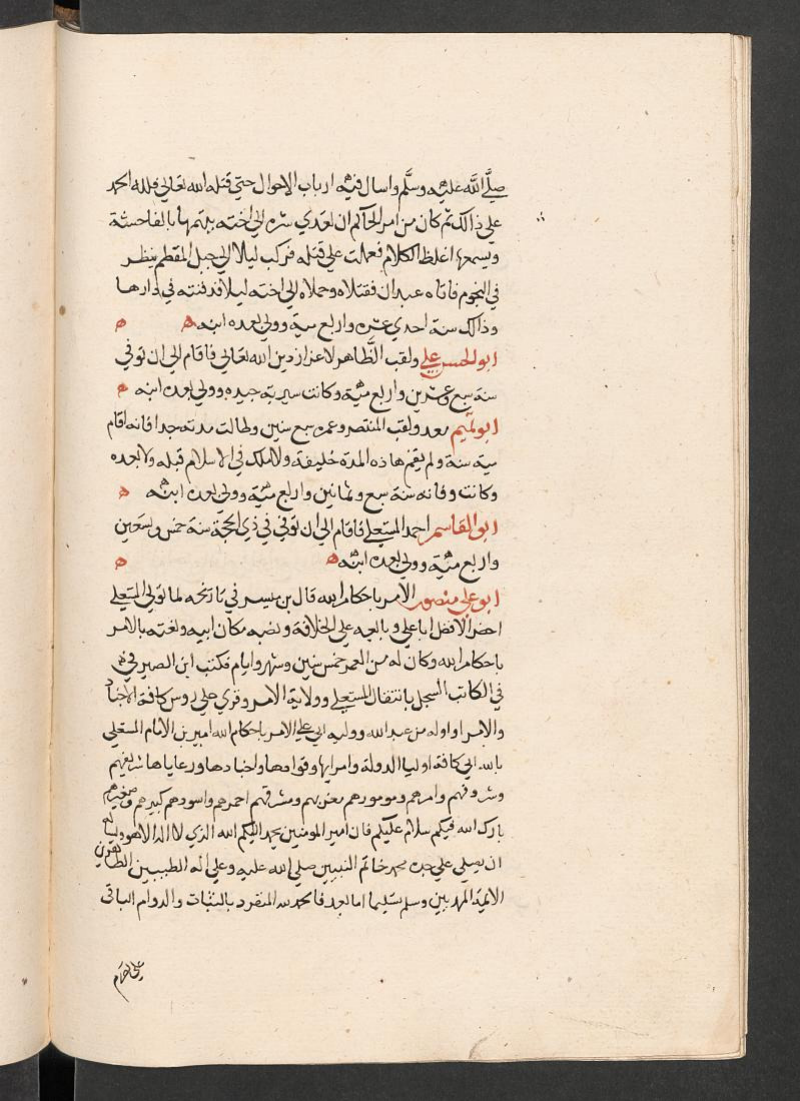 صلَّى اللَّه عليه وسلَّم واسال فيه ارباب الاحوال حتي قتله الله تعالي فلله الحمد
علي ذالك ثم كان من امر الحاكم ان تعدي شره الي اخته يتهمها بالفاحشة
ويسمعها اغلظ الكلام فعملت علي قتله فركب ليلا الي جبل المقطم ينظر
في النجوم فاتاه عبدان فقتلاه وحملاه الي اخته ليلا فدفنته في دارها
وذالك سنة احدي عشره واربع مية وولي بعده ابنه ه ه
ابو الحسن علي ولقب الظاهر لاعزاز دين الله تعالي فاقام الي ان توفي
سنة سبع وعشرين واربع مئية وكانت سيرته جيده وولي بعده ابنه ه
ابو تميم معد ولقب المنتصر وعمره سبع سنين وطالت مدته جدا فانه اقام
ستة سنة ولم يقم هاذه المدة خليفة ولا ملك في الاسلام قبله ولا بعده
وكانت وفاته سنة سبع وثمانين واربع مئية وولي بعده ابنه ه
ابو القاسم احمد المستعلي فاقام الي ان توفي في ذي الحجة سنة خمس وتسعين
واربع مئية وولي بعده ابنه ه ه
ابو علي منصور الآمر باحكام الله قال بن ميسر في تاريخه لما توفي المستعلي
احضر الافضل ابا علي وبايعه علي الخلافة ونصبه مكان ابيه ونعته بالامر
باحكام الله وكان له من العمر خمس سنين وشهر وايام فكتب ابن الصيرفي
في الكاتب السجل بانتقال المستعلي وولاية الامر وقري علي روس كافة الاجناد
والامرا واوله من عبد الله ووليه ابي علي الامر باحكام الله امير بن الامام المستعلي
بالله الي كافة اوليا الدولة وامرايها وقوادها واجنادها ورعاياها شريفهم
ومشروفهم وامرهم ومومورهم مغربهم ومشرقهم احمرهم واسودهم كبيرهم وصغيرهم
بارك الله فيكم سلام عليكم فان امير المومنين يحمد اليكم الله الذي لا اله الا هو ويساله
ان يصلي علي جده محمد خاتم النبيين صلي الله عليه وعلي اله الطيبين الطاهرين
الايمة المهديين وسلم تسليما اما بعد فالحمد لله المنفرد بالثبات والدوام الباقي
علي